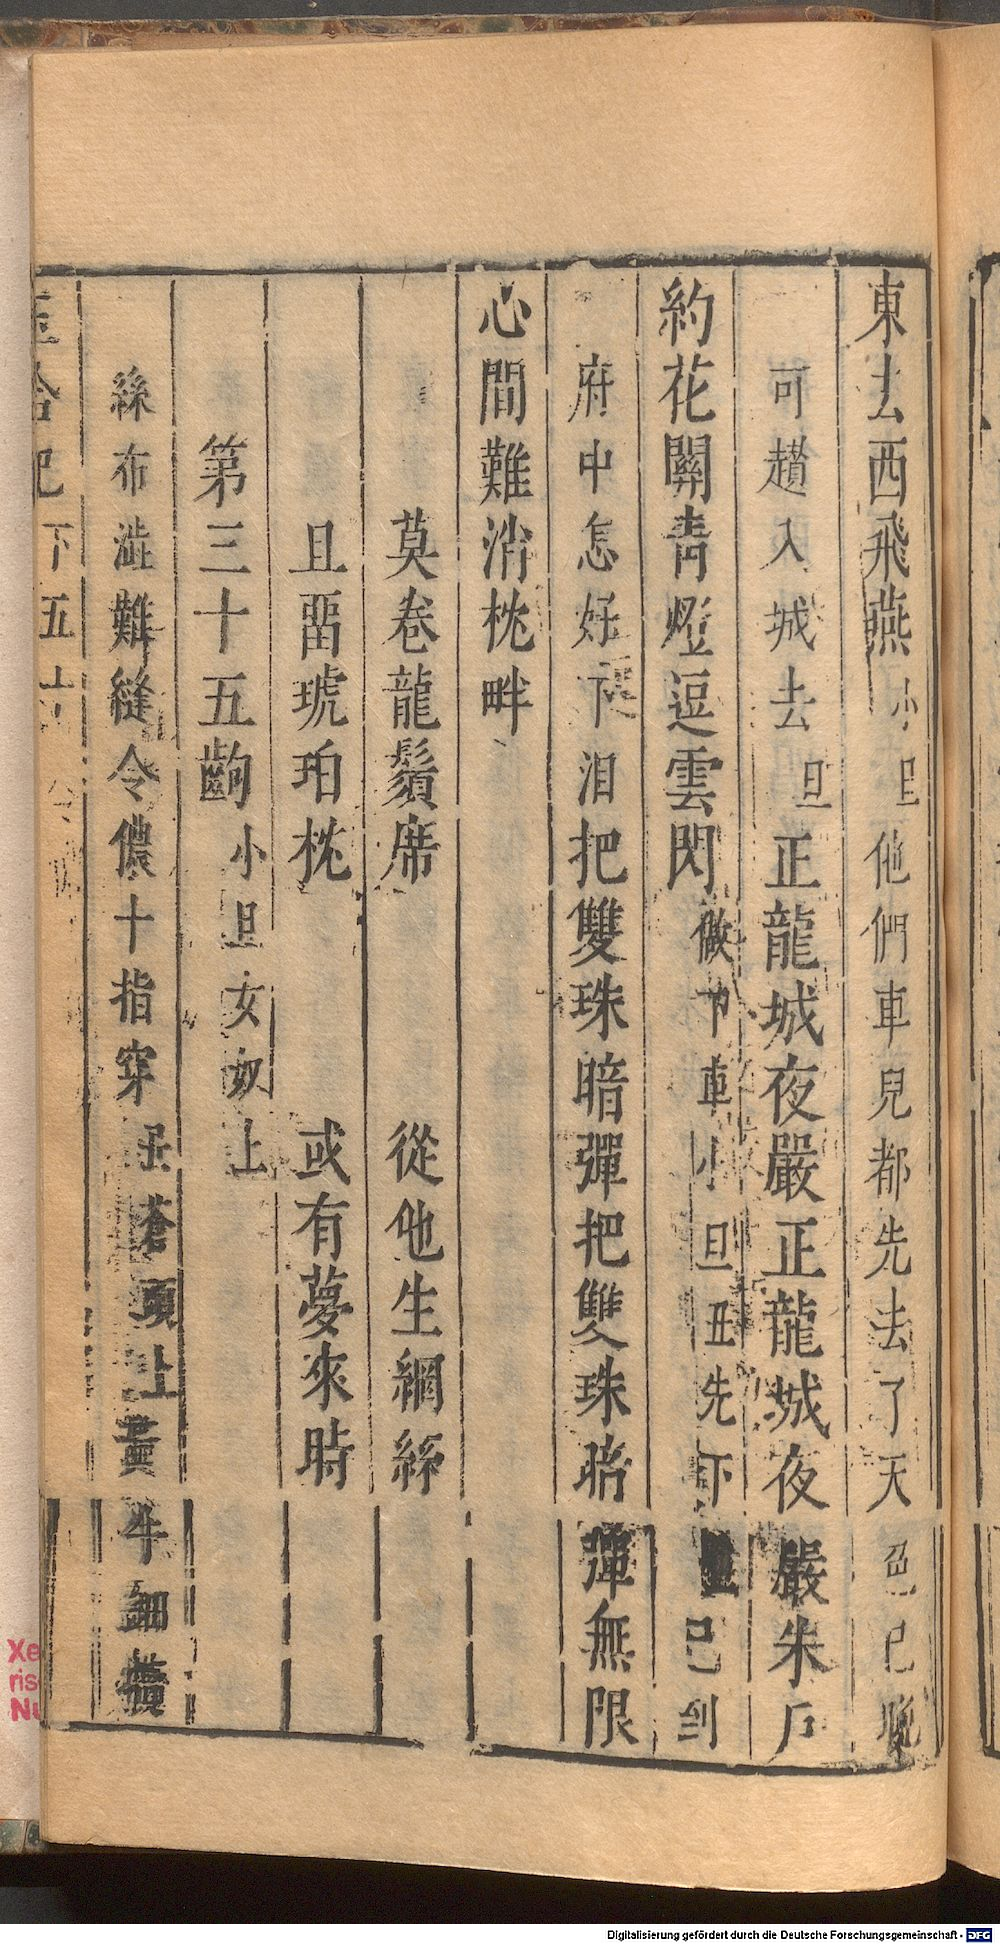 東去西飛燕小旦他們車兒都先去了天色已晚
可趲入城去旦正龍城夜嚴正龍城夜嚴朱戶
約花關靑燈逗雲閃做下車小旦丑先下旦已到
府中怎好下淚把雙珠暗彈把雙珠暗彈無限
心間難消枕畔
莫卷龍鬚席 從他生網絲
且畱琥珀枕 或有夢來時
第三十五齣小旦女奴上
絲布澁難縫令儂十指穿丑蒼頭上黃牛細犢
合記 下五
Digitalisierung gefördert durch die Deutsche Forschungsgemeinschaft - DFG